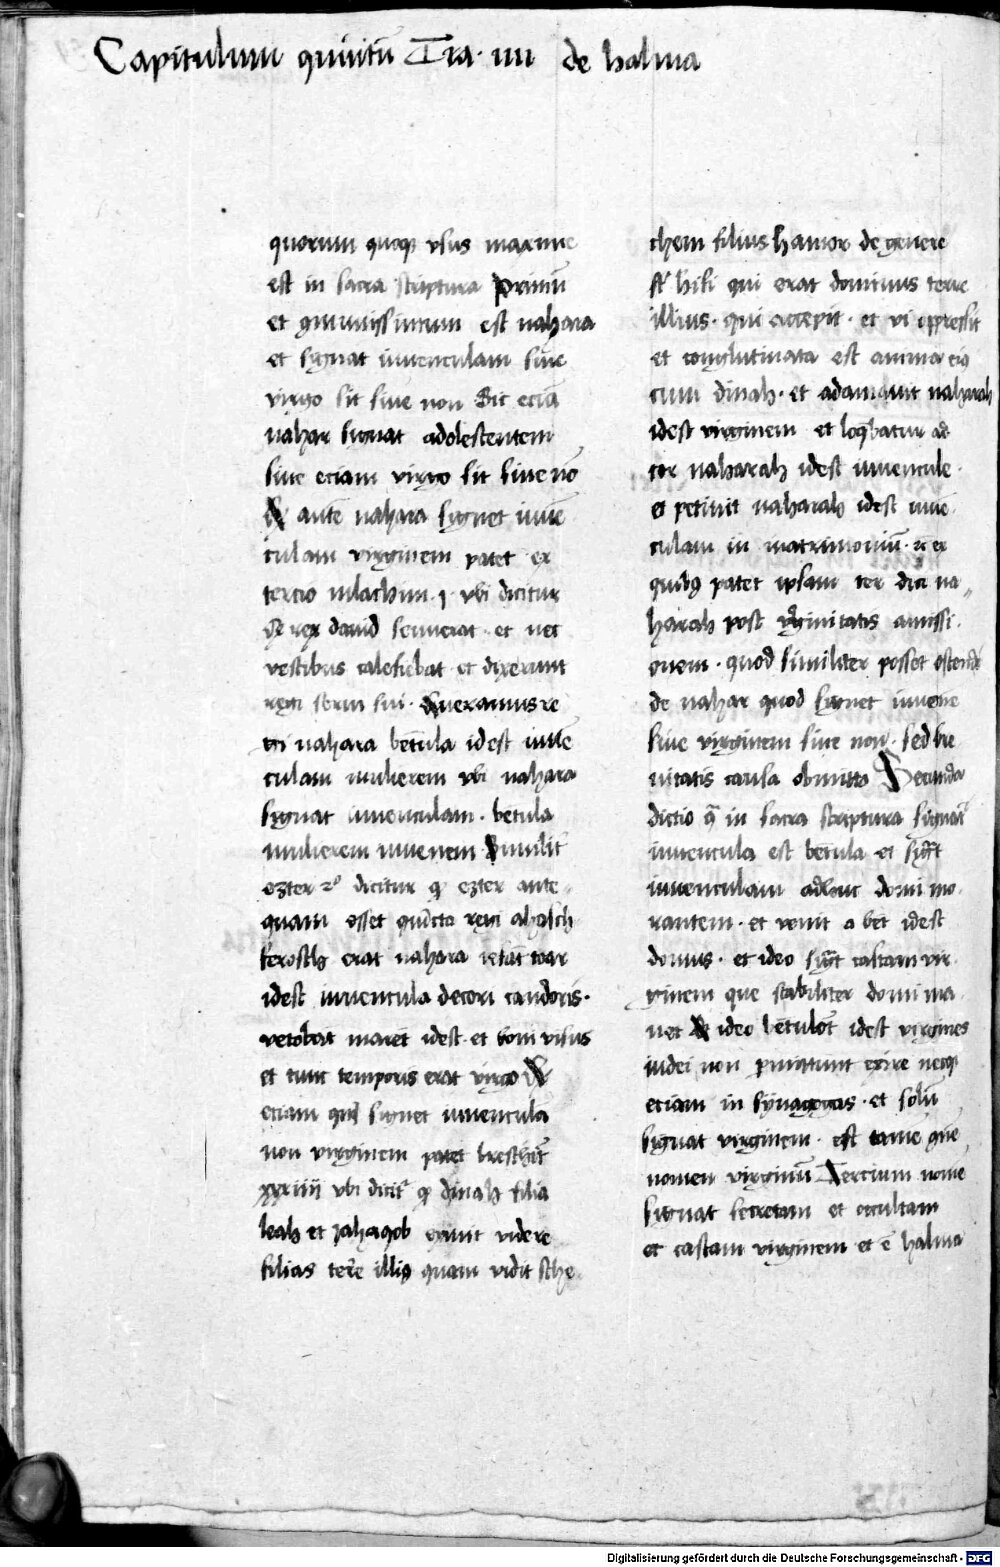 Capitulum quintū Tra· iiii de halma
quorum quoqꝫ vsus maxime
est in sacra scriptura Primū
et comunissimum est nahara
et signat iuuenculam siue
virgo sit siue non Sic eciā
nahar signat adolescentem
siue eciam virgo sit siue nō
autē nahara signet iuuē
culam virginem patet ex
tercio mlachim · 1 · vbi dicitur
rex dauid senuerat · et nec
vestibus calefiebat · et dixerunt
regi serui sui · queramus re
gi nahara betula idest iuuē
culam mulierem vbi nahara
signat iuuenculam · betula
mulierem iuuenem Similit͛
ezter 2º dicitur ꝙ ezter ante
quam esset cōiūcta regi ahasch
ferosth erat nahara iefat toar
idest iuuencula decori candoris·
vetobat mareh idest · et boni visus
et tunc temporis erat virgo
eciam signet iuuencula
non virginem patet breschit
xxxiiii vbi dicit͛ ꝙ dinah filia
leah et jahaqob exiuit videre
filias terre illiꝰ quam vidit sche
chem filius hamor de genere
hifi qui erat dominus terre
illius · qui accepit · et vi oppressit
et conglutinata est anima eiꝰ
cum dinah · et adamauit naharah
idest virginem et loqbatur ad
cor naharah idest iuuencule ·
et petiuit naharah idest iuuē
culam in matrimoniū · ex
quibꝰ patet ipsam ter dici na
harah post virginitatis amissi
onem · quod similiter posset ostendi
de nahar quod signet iuuene
siue virginem siue non · sed bre
uitatis causa obmitto Secunda
dictio q̄ in sacra scriptura signat͛
iuuencula est betula et sigt
iuuenculam adhuc domi mo
rantem · et venit a bet idest
domus · et ideo sigt castam vir
ginem que stabiliter domi ma
net et ideo betulot idest virgines
iudei non pmittunt exire neqꝫ
eciam in synagogas · et solū
signat virginem · est tamē
nomen virginum Tercium nomē
signat secretam et occultam
et castam virginem et ē halma
Digitalisierung gefördert durch die Deutsche Forschungsgemeinschaft - DFG